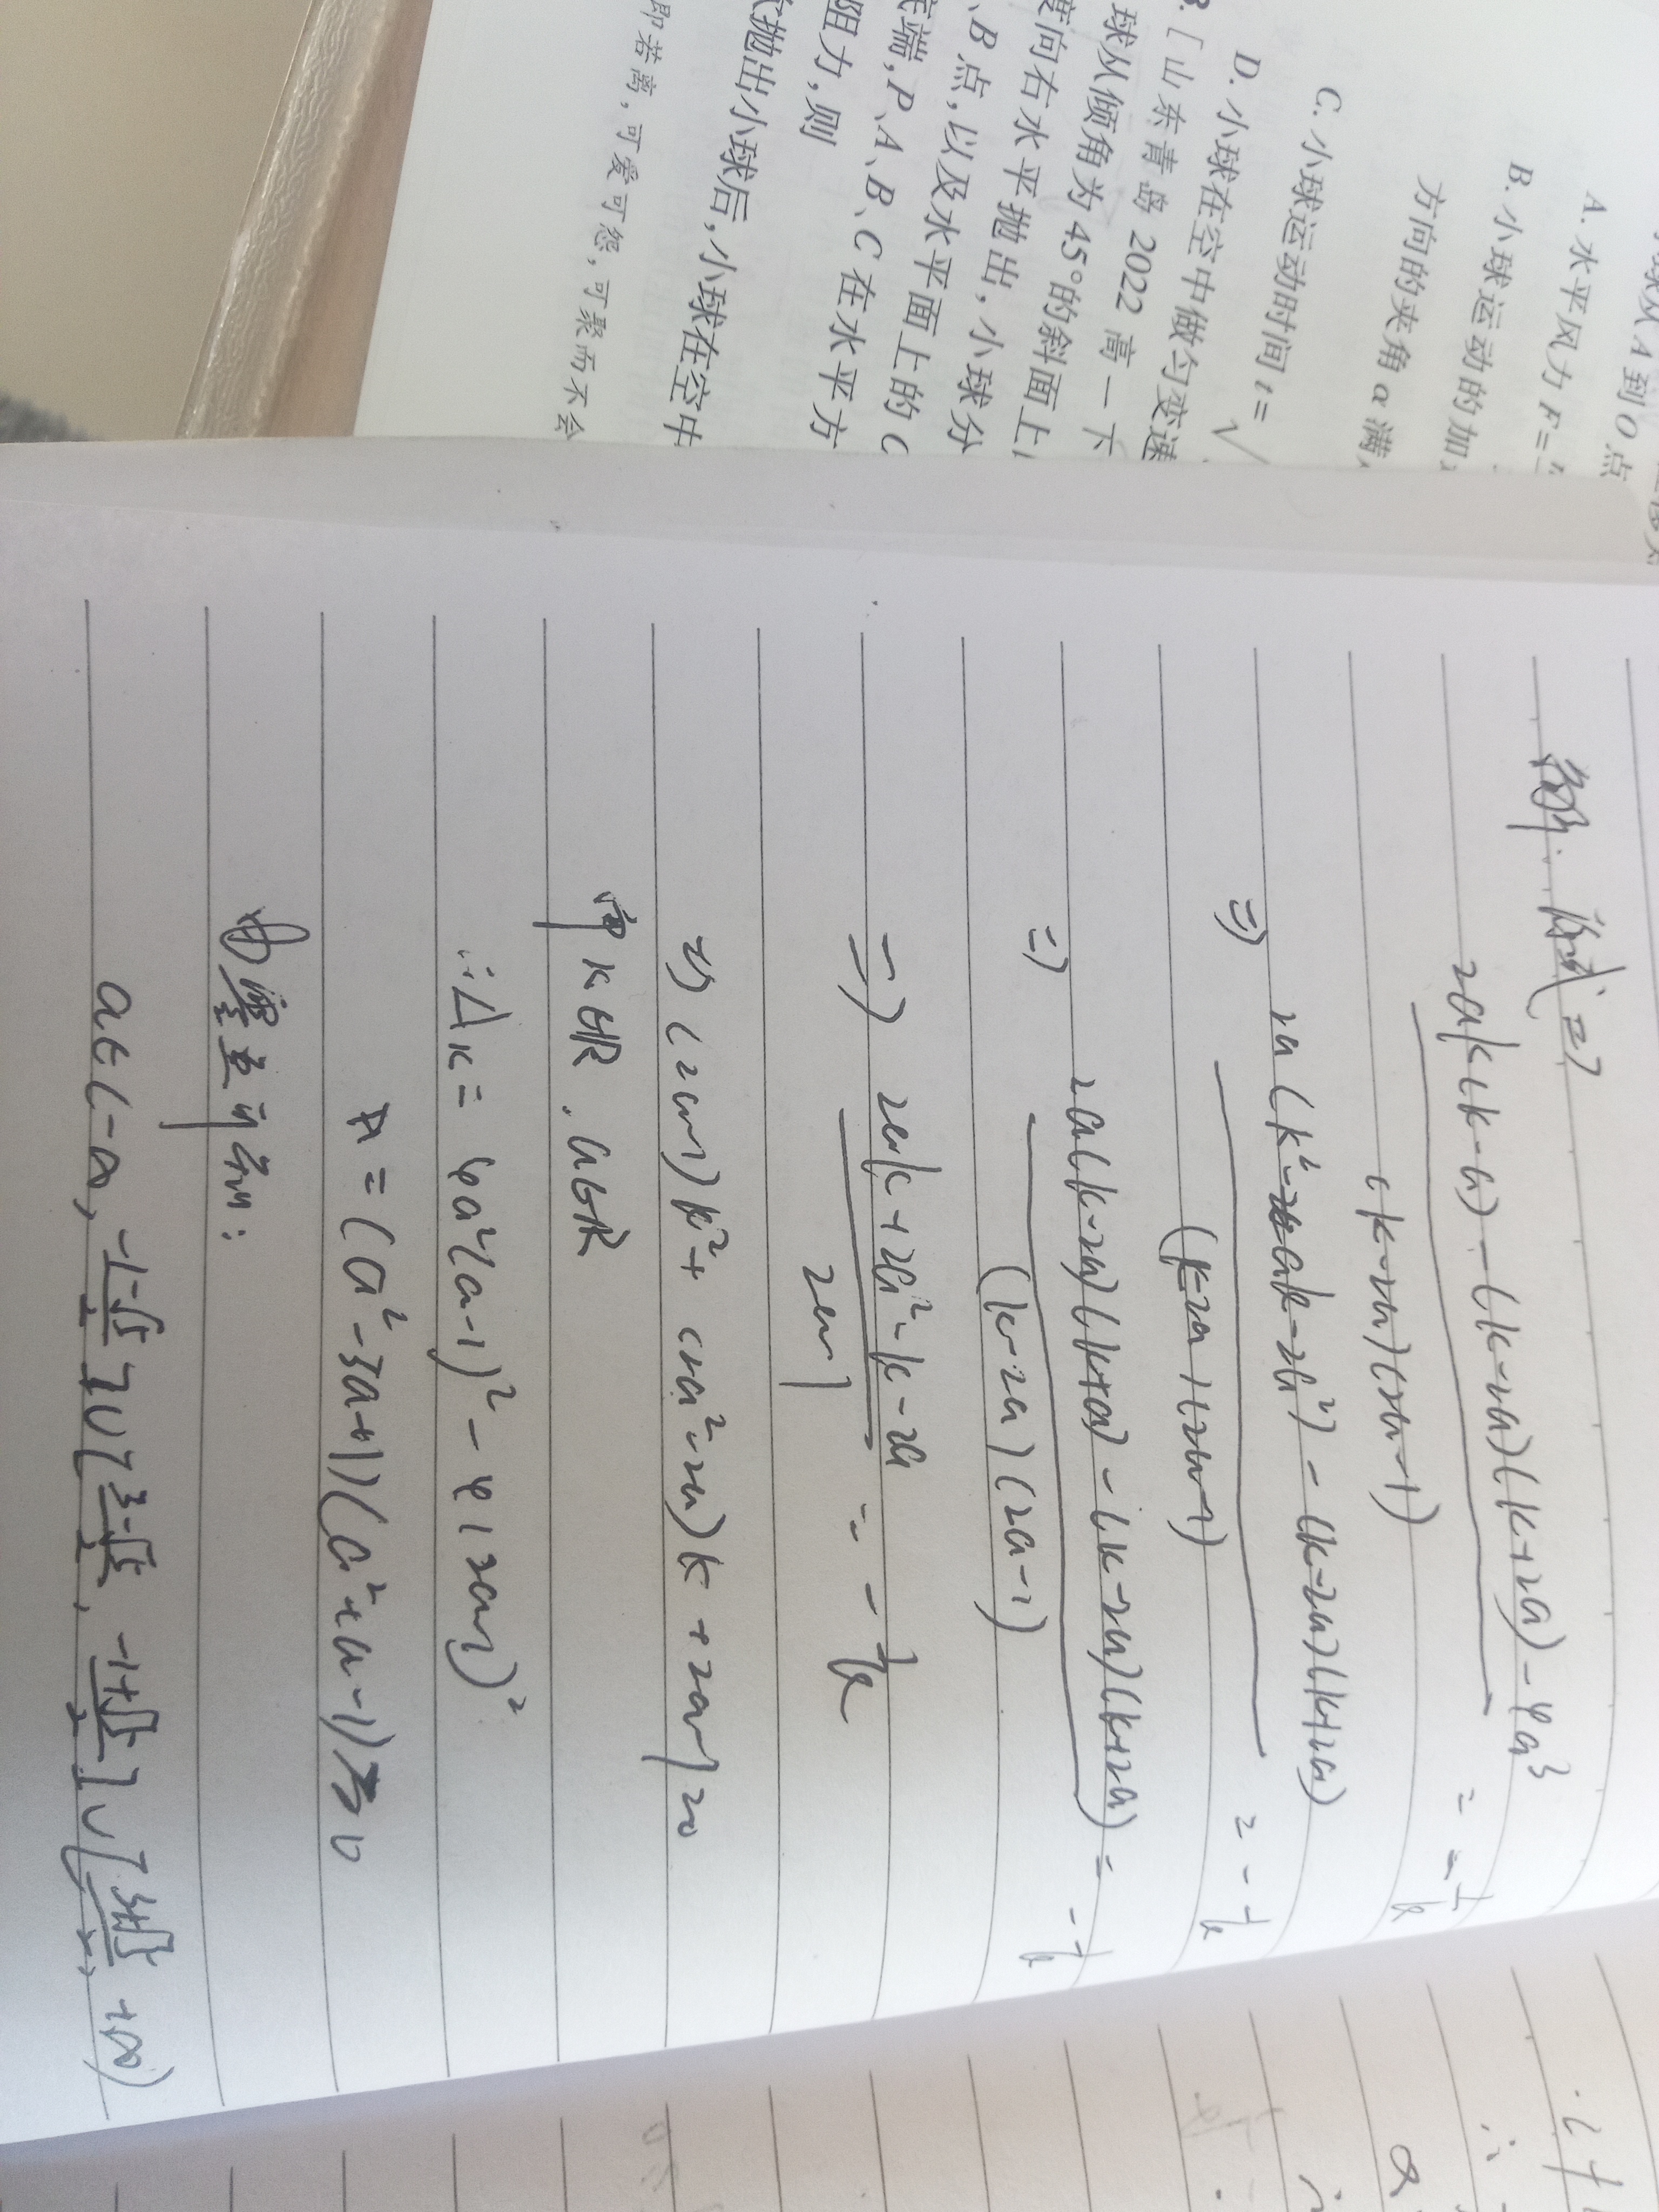 小球从A到O点
A.水平风力F=
B.小球运动的加
方向的夹角α满
C.小球运动时间t=√
D.小球在空中做匀变速
[山东青岛2022高一下
球从倾角为45°的斜面上
度向右水平抛出,小球分
、B点,以及水平面上的C
底端,P、A、B、C在水平方
阻力,则
抛出小球后,小球在空中
即若离,可爱可怨,可聚而不会
解. 原式=>
2ak(k-a)-(k-2a)(k+2a)-4a³
(k-2a)(2a-1)
= -1/k
=> 2a(k²-ak-2a²)-(k-2a)(k+2a)
(k-2a)(2a-1)
= -1/k
=> 2a(k-2a)(k+a)-(k-2a)(k+2a)
(k-2a)(2a-1)
= -1/k
=> 2ak+2a²-k-2a
2a-1
= -1/k
=> (2a-1)k²+(2a²-2a)k+2a-1=0
k∈R, a∈R
∴Δk=4a²(a-1)²-4(2a-1)²
=(a²-3a+1)(a²+a-1)≥0
可知:
a∈(-∞, (-1-√5)/2]∪[(3-√5)/2, (-1+√5)/2]∪[(3+√5)/2, +∞)